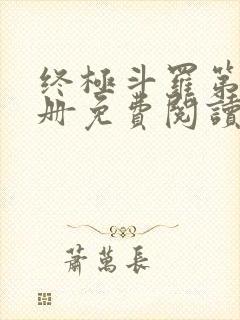 终極斗羅第
册免費閱讀
蕭萬長